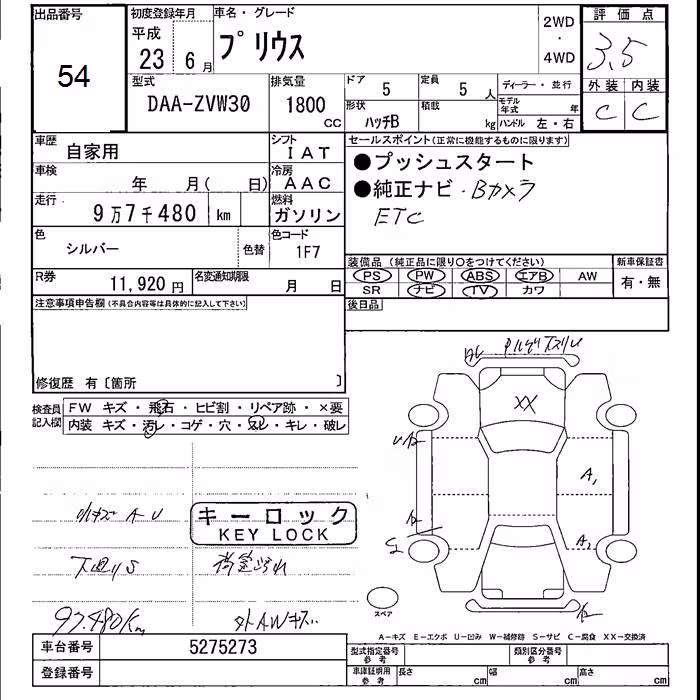 出品番号 初度登録年月 車名・グレード 評価点
54 平成 23 6月 プリウス 2WD ・ 4WD 3.5
型式 排気量 ドア 5 定員 5人 ディーラー・並行 外装 内装
DAA-ZVW30 1800cc 形状 ハッチB 積載 kg モデル年式 年 ハンドル 左・右 C C
車歴 自家用 シフト IAT セールスポイント(正常に機能するものに限ります)
車検 年 月( 日) 冷房 AAC ●プッシュスタート
走行 9万7千480 km 燃料 ガソリン ●純正ナビ・Bカメラ
ETC
色 シルバー 色替 色コード 1F7
装備品(純正品に限り○をつけてください) 新車保証書
PS PW ABS エアB AW 有・無
SR ナビ TV カワ
R券 11,920円 名変通知期限 月 日
後日品
注意事項申告欄(不具合内容等は具体的に記入して下さい)
修復歴 有〔箇所 〕
検査員記入欄 FW キズ・飛石・ヒビ割・リペア跡・×要
内装 キズ・汚レ・コゲ・穴・スレ・キレ・破レ
XX
A1
A1
小キズ A U
キーロック
KEY LOCK
下廻りS 荷室汚れ
97.480Km 外AWキズ
スペア
A−キズ E−エクボ U−凹み W−補修跡 S−サビ C−腐食 XX−交換済
車台番号 5275273 型式指定番号 参考 類別区分番号 参考
登録番号 車庫証明用 参考 長さ cm 幅 cm 高さ cm